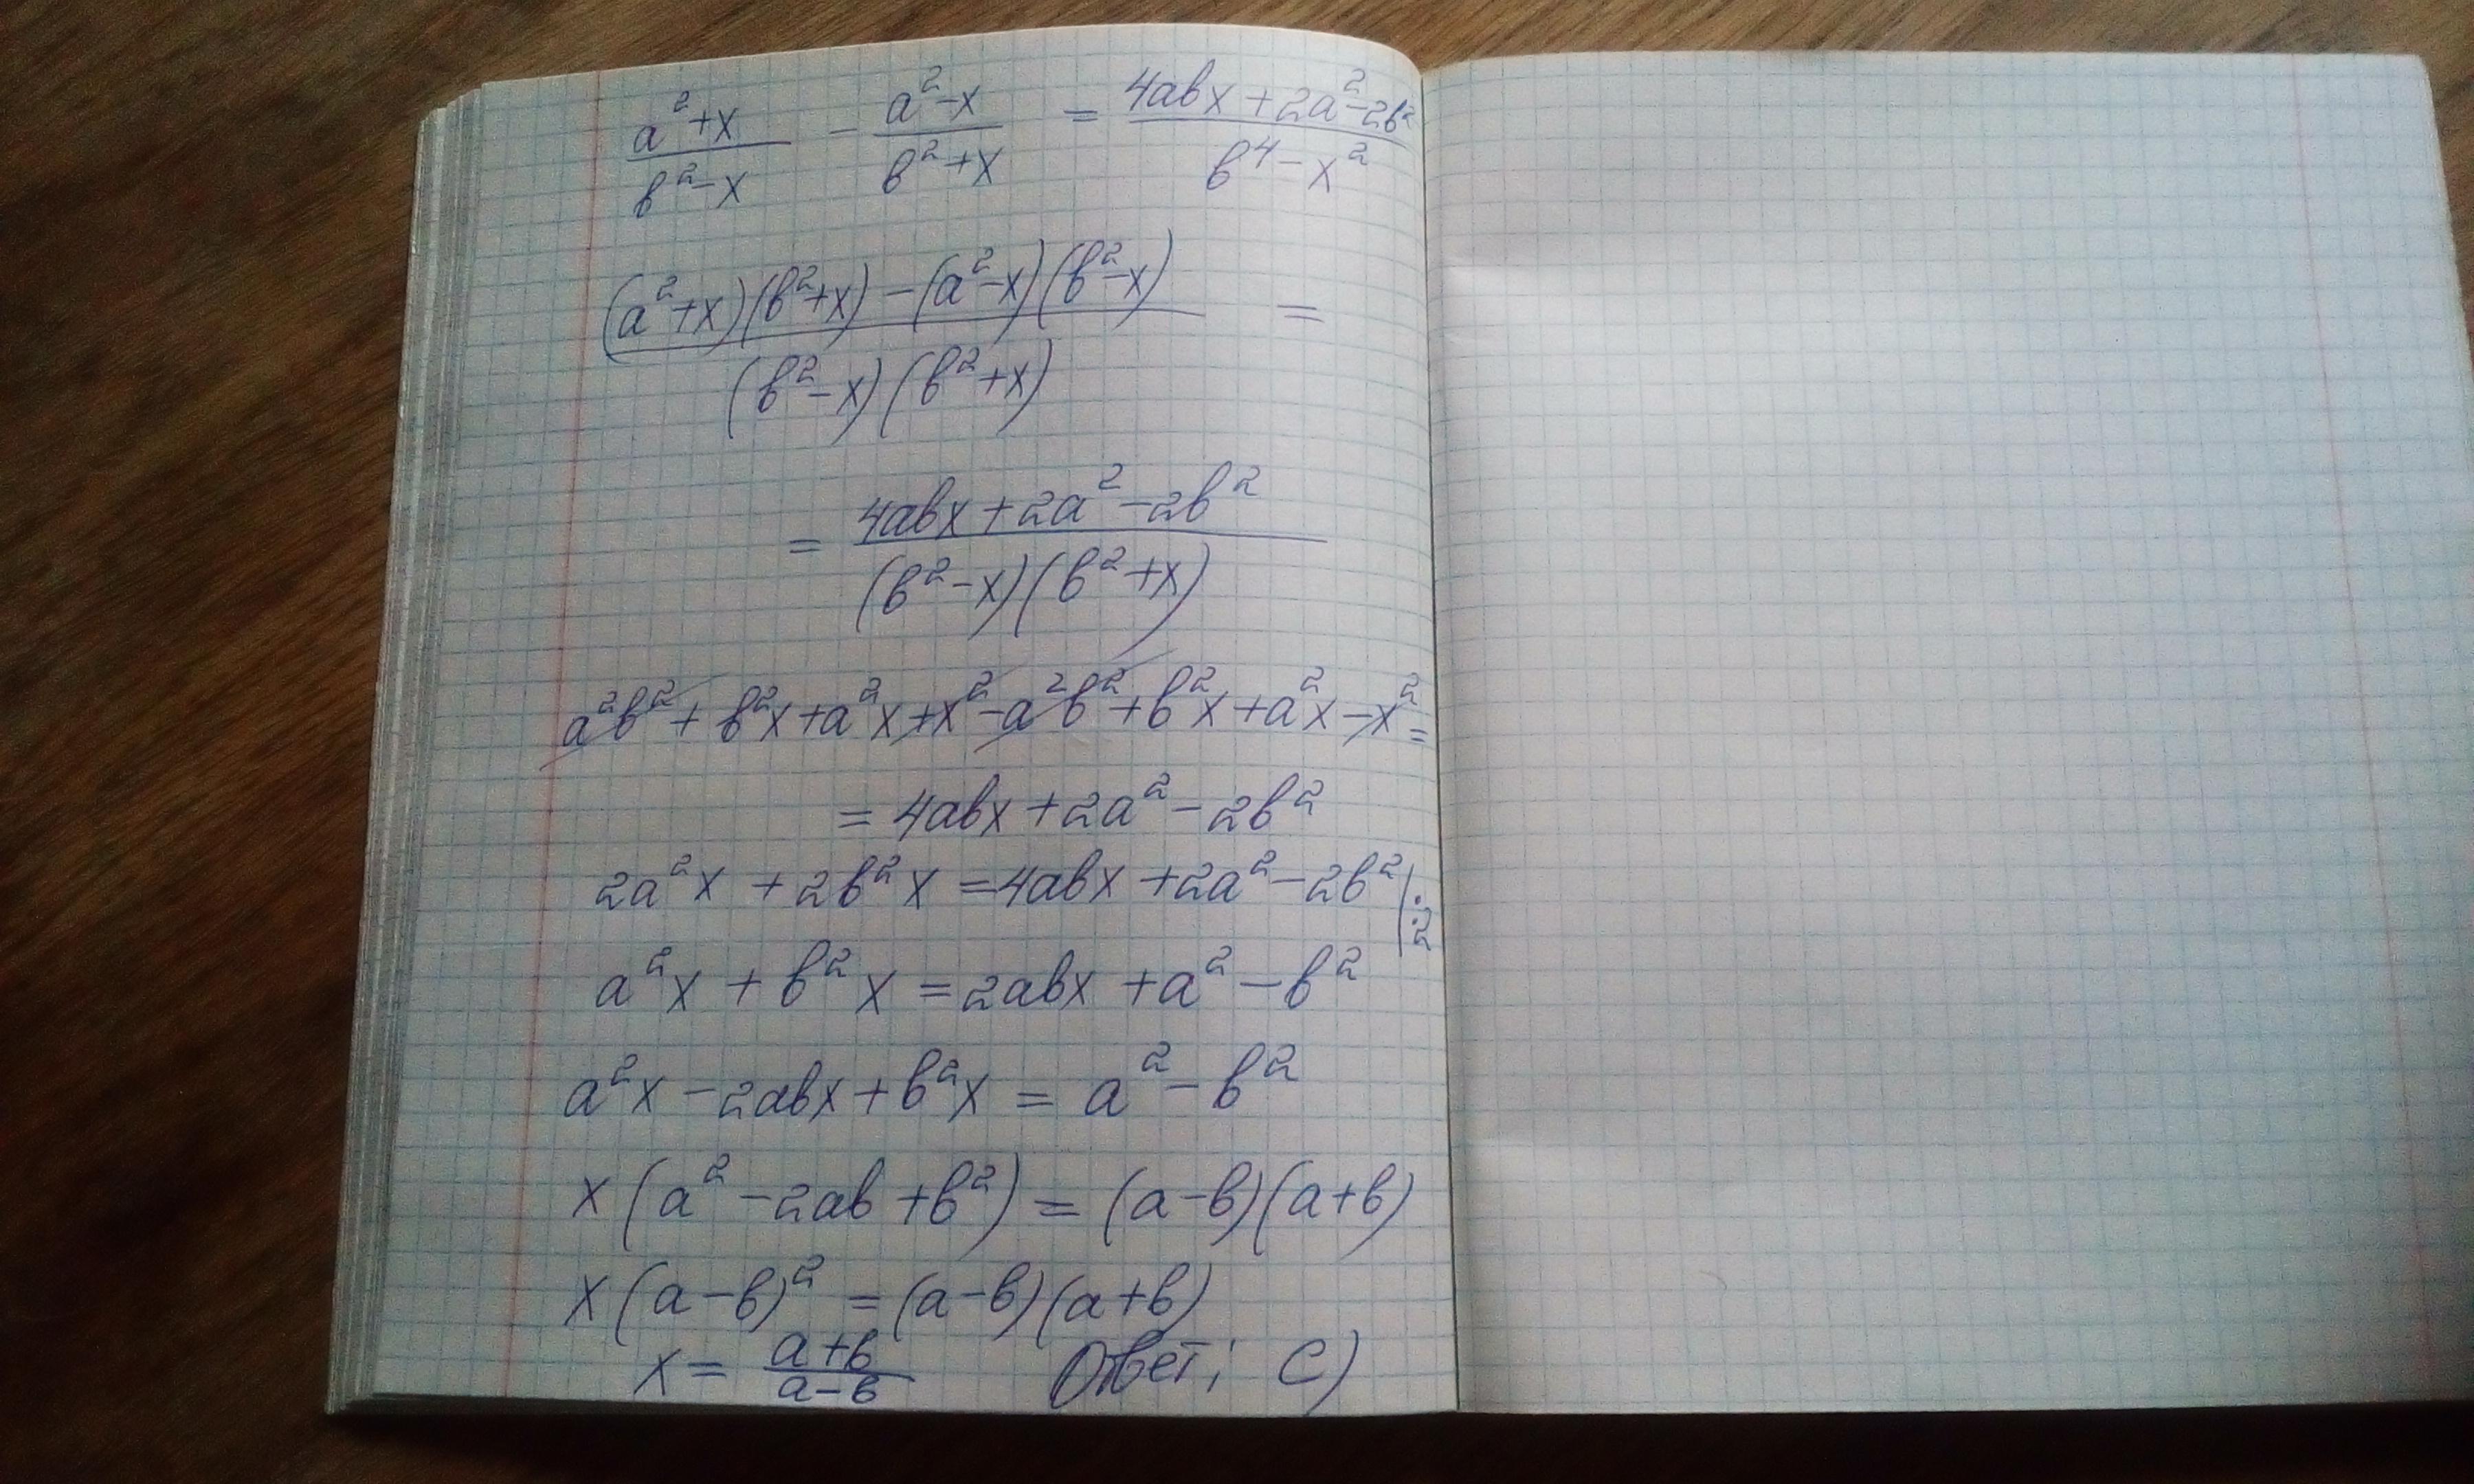 (a²+x)/(b²-x) - (a²-x)/(b²+x) = (4abx+2a²-2b²)/(b⁴-x²)
((a²+x)(b²+x)-(a²-x)(b²-x))/((b²-x)(b²+x)) =
= (4abx+2a²-2b²)/((b²-x)(b²+x))
a²b²+b²x+a²x+x²-a²b²+b²x+a²x-x²=
= 4abx+2a²-2b²
2a²x+2b²x=4abx+2a²-2b² |:2
a²x+b²x=2abx+a²-b²
a²x-2abx+b²x = a²-b²
x(a²-2ab+b²) = (a-b)(a+b)
x(a-b)² =(a-b)(a+b)
x = (a+b)/(a-b) Ответ: C)